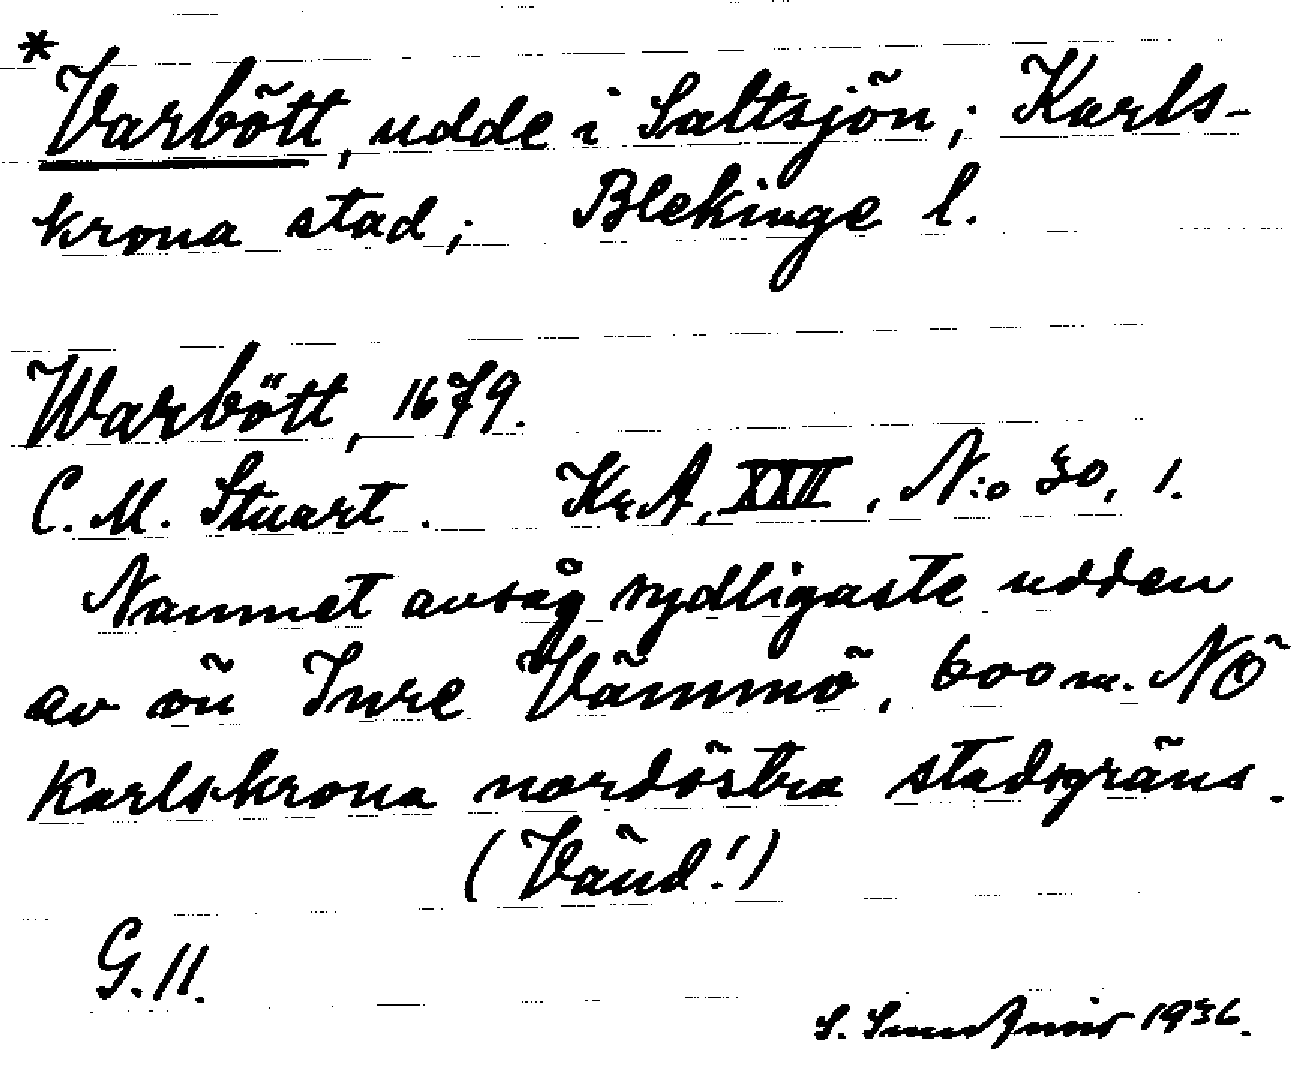 *Varbött, udde i Saltsjön; Karls-
krona stad; Blekinge l.
Warbött, 1679.
C. M. Stuart. KrA, XXII, N:o 30, 1.
Namnet avsåg sydligaste udden
av ön Inre Vämmö, 600 m. NÖ
Karlskrona nordöstra stadsgräns.
(Vänd!)
G. 11.
S. 1936.